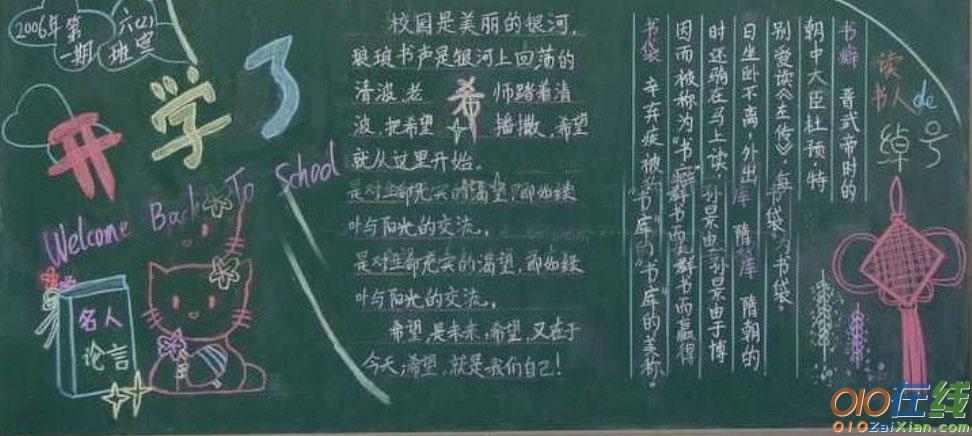 2006年第
一期
六(2)
班宣
开学了
Welcome Back To School
名人
论言
校园是美丽的银河,
琅琅书声是银河上回荡的
清波,老 希 师踏着清
波,把希望 播撒,希望
就从这里开始。
是对生命充实的渴望,即如绿
叶与阳光的交流。
是对生命充实的渴望,即如绿
叶与阳光的交流。
希望,是未来,希望,又在于
今天,希望,就是我们自己!
读书人de
绰号
书癖 晋武帝时的
朝中大臣杜预,特
别爱读《左传》,每
日坐卧不离,外出
时还驮在马上读,
因而被称为“书
书袋
书袋为书袋。
库 隋 库 隋朝的
孙景由 孙景由于博
群书而 群书而赢得
“书库”的“书库”的美称。
010在线
010ZaiXian.com